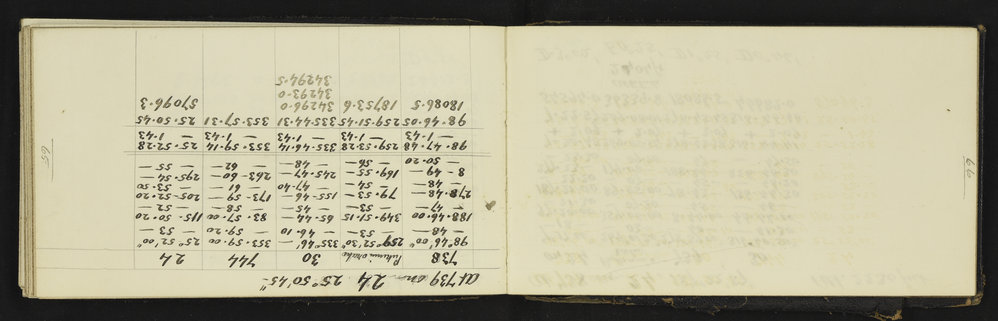 At 739 on 24 25° 50' 45"
738 30 744 24
98° 46' 00" 259° 52' 30" 335° 46' — 353. 59. 00 25° 52' 00"
— 48 — — 53 — — 46. 10 — 59. 20 — 53 —
188. 46. 00 349. 51. 15 65. 44 — 83. 57. 00 115. 50. 20
— 47 — — 53 — — 45 — — 58 — — 52 —
278. 48 — 79. 53 — 155. 46 — 173 - 59 — 205. 52. 20
— 48 — — 54 — — 47. 40 — 61 — — 53. 50
8 - 49 — 169. 55 — 245. 47 — 263 - 60 — 295. 54 —
— 50. 20 — 56 — — 48 — — 62 — — 55 —
98. 47. 48 259. 53. 28 335. 46. 14 353. 59. 14 25. 52. 28
— 1. 43 — 1. 43 — 1. 43 — 1. 43 — 1. 43
98. 46. 05 259. 51. 45 335. 44. 31 353. 57. 31 25. 50. 45
18086.5 18753.6 34296.0 57096.3
34293.0
34294.5
65
66